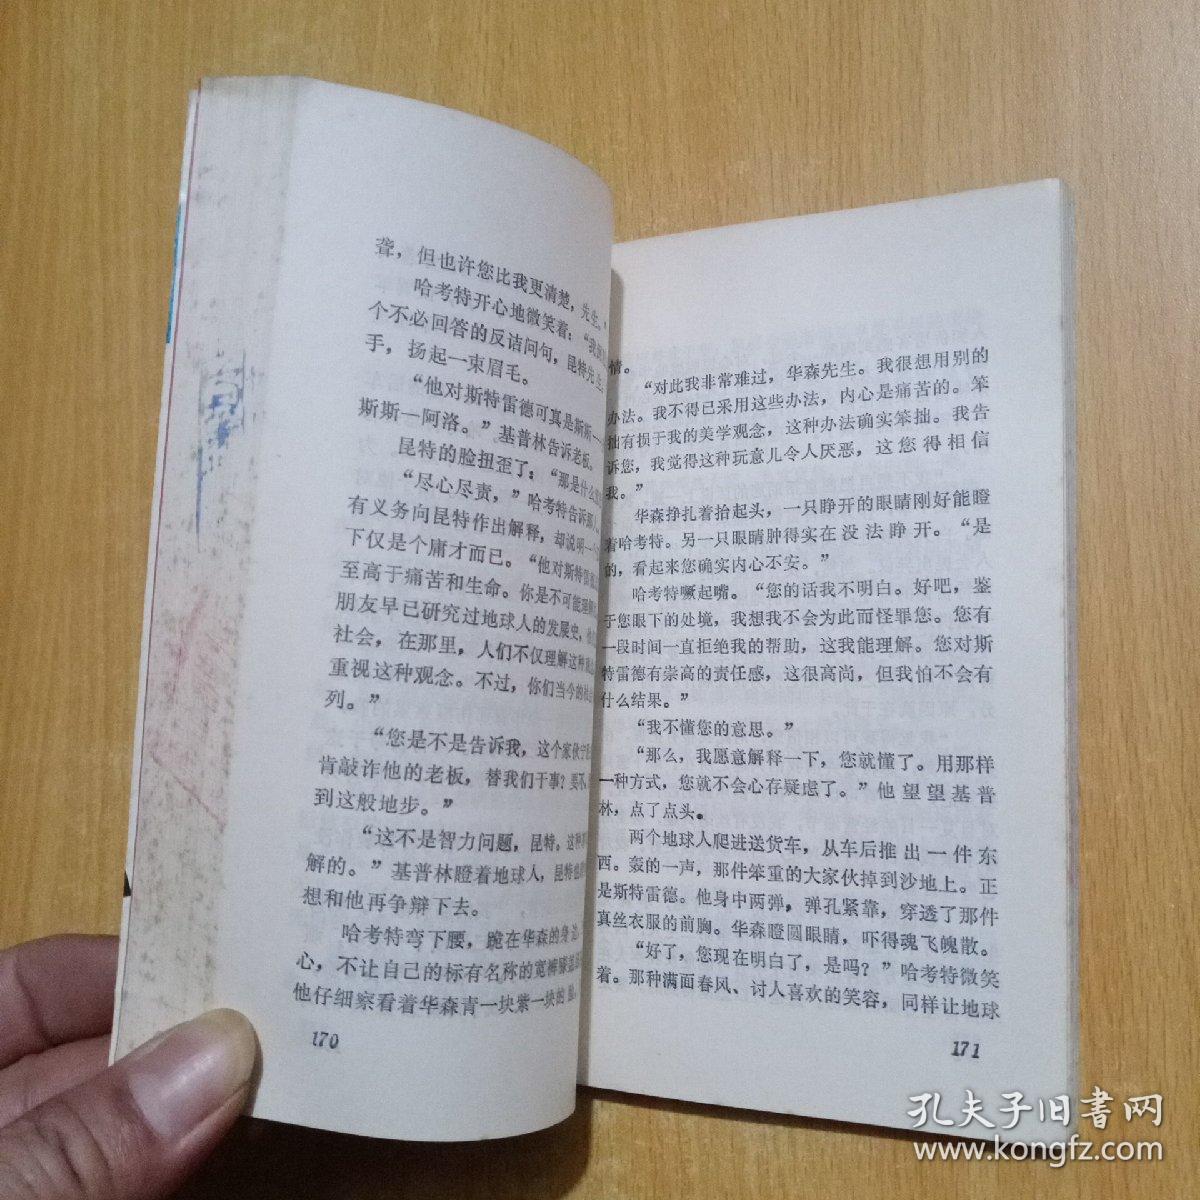 聋，但也许您比我更清楚，先生。
哈考特开心地微笑着：“我
个不必回答的反诘问句，昆特先生
手，扬起一束眉毛。
“他对斯特雷德可真是斯斯—
斯斯—阿洛。”基普林告诉老板。
昆特的脸扭歪了：“那是什么
“尽心尽责，”哈考特告诉那人
有义务向昆特作出解释，却说明一个
下仅是个庸才而已。“他对斯特雷
至高于痛苦和生命。你是不可能理解
朋友早已研究过地球人的发展史，
社会，在那里，人们不仅理解这种
重视这种观念。不过，你们当今的社
列。”
“您是不是告诉我，这个家伙宁
肯敲诈他的老板，替我们干事？要不
到这般地步。”
“这不是智力问题，昆特。这种
解的。”基普林瞪着地球人，昆特也
想和他再争辩下去。
哈考特弯下腰，跪在华森的身边
心，不让自己的标有名称的宽裤
他仔细察看着华森青一块紫一块的
170
情。
“对此我非常难过，华森先生。我很想用别的
办法。我不得已采用这些办法，内心是痛苦的。笨
拙有损于我的美学观念，这种办法确实笨拙。我告
诉您，我觉得这种玩意儿令人厌恶，这您得相信
我。”
华森挣扎着抬起头，一只睁开的眼睛刚好能瞪
着哈考特。另一只眼睛肿得实在没法睁开。“是
的，看起来您确实内心不安。”
哈考特噘起嘴。“您的话我不明白。好吧，鉴
于您眼下的处境，我想我不会为此而怪罪您。您有
一段时间一直拒绝我的帮助，这我能理解。您对斯
特雷德有崇高的责任感，这很高尚，但我怕不会有
什么结果。”
“我不懂您的意思。”
“那么，我愿意解释一下，您就懂了。用那样
一种方式，您就不会心存疑虑了。”他望望基普
林，点了点头。
两个地球人爬进送货车，从车后推出一件东
西。轰的一声，那件笨重的大家伙掉到沙地上。正
是斯特雷德。他身中两弹，弹孔紧靠，穿透了那件
真丝衣服的前胸。华森瞪圆眼睛，吓得魂飞魄散。
“好了，您现在明白了，是吗？”哈考特微笑
着。那种满面春风、讨人喜欢的笑容，同样让地球
171
孔夫子旧书网
www.kongfz.com